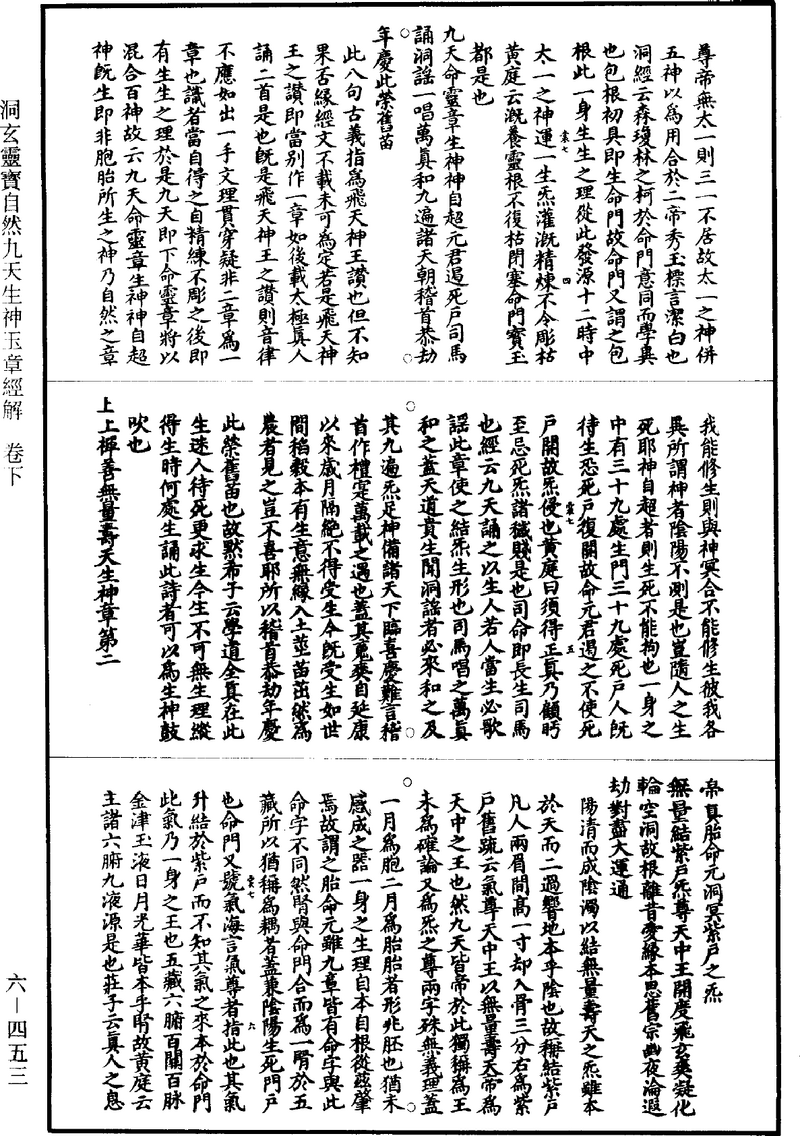 洞玄靈寶自然九天生神玉章經解　卷下
六—四五三
尊帝無太一則三一不居故太一之神併
五神以為用合於二帝秀玉標言潔白也
洞經云森瓊林之柯於命門意同而學異
也包根初具即生命門故命門又謂之包
根此一身生生之理從此發源十二時中
太一之神運一生炁灌溉精煉不令彫枯
黃庭云溉養靈根不復枯閉塞命門寶玉
都是也
九天命靈章生神神自超元君遏死戶司馬
誦洞謠一唱萬真和九遍諸天朝稽首恭劫
年慶此榮舊苗
此八句古義指為飛天神王讚也但不知
果否緣經文不載未可為定若是飛天神
王之讚即當別作一章如後載太極真人
誦二首是也既是飛天神王之讚則音律
不應如出一手文理貫穿疑非二章為一
章也識者當自得之自精練不彫之後即
有生生之理於是九天即下命靈章將以
混合百神故云九天命靈章生神神自超
神既生即非胞胎所生之神乃自然之章
我能修生則與神冥合不能修生彼我各
異所謂神者陰陽不測是也豈隨人之生
死耶神自超者則生死不能拘也一身之
中有三十九處生門三十九處死戶人既
待生恐死戶復開故命元君遏之不使死
戶開故炁侵也黃庭曰須得正真乃顧眄
至忌死炁諸穢賤是也司命即長生司馬
也經云九天誦之以生人若人當生必歌
謠此章使之結炁生形也司馬唱之萬真
和之蓋天道貴生聞洞謠者必來和之及
其九遍炁足神備諸天下臨喜慶難言稽
首作禮寔萬載之遇也蓋其冤爽自延康
以來歲月隔絕不得受生今既受生如世
間稻穀本有生意無緣入土莖苗茁然為
農者見之豈不喜耶所以稽首恭劫年慶
此榮舊苗也故默希子云學道全真在此
生迷人待死更求生今生不可無生理縱
得生時何處生誦此詩者可以為生神鼓
吹也
上上禪善無量壽天生神章第二
帝真胎命元洞冥紫戶之炁
無量結紫戶炁尊天中王開度飛玄爽凝化
輪空洞故根離昔愛緣本思舊宗幽夜淪遐
劫對盡大運通
陽清而成陰濁以結無量壽天之炁雖本
於天而二過響地本乎陰也故稱結紫戶
凡人兩眉間高一寸却入骨三分右為紫
戶舊疏云氣尊天中王以無量壽天帝為
天中之王也然九天皆帝於此獨稱為王
未為確論又為炁之尊兩字殊無義理蓋
一月為胞二月為胎胎者形兆胚也猶未
感成之器一身之生理自本自根從玆肇
焉故謂之胎命元雖九章皆有命字與此
命字不同然腎與命門合而為一腎於五
藏所以猶稱為耦者蓋兼陰陽生死門戶
也命門又號氣海言氣尊者指此也其氣
升結於紫戶而不知其氣之來本於命門
此氣乃一身之王也五藏六腑百關百脉
金津玉液日月光華皆本乎腎故黃庭云
主諸六腑九液源是也莊子云真人之息